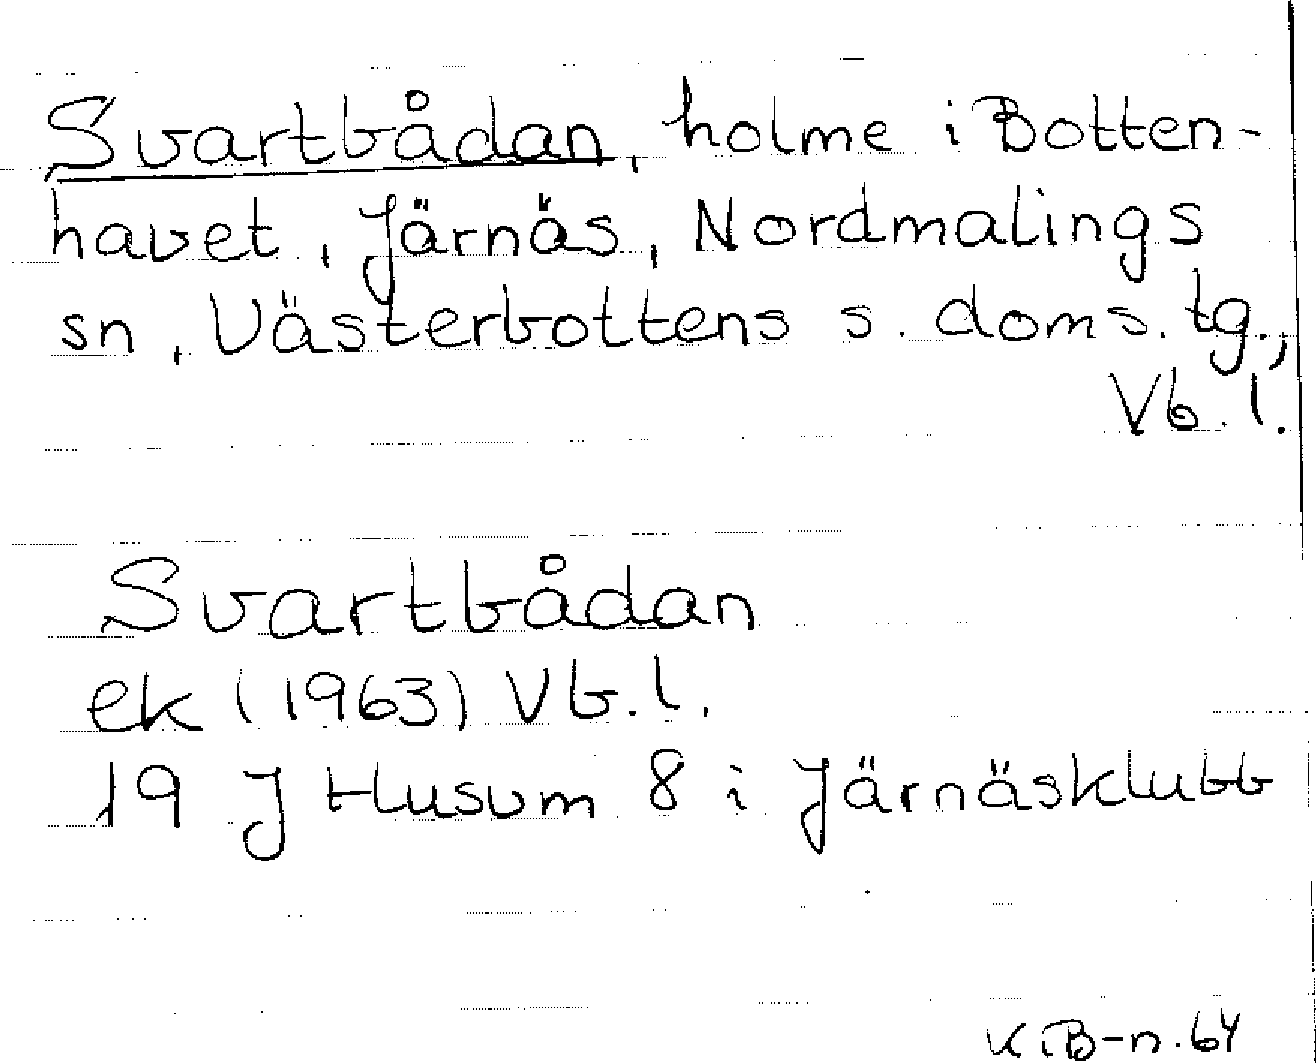 Svartbådan, holme i Botten-
havet, Järnäs, Nordmalings
sn, Västerbottens s. doms. tg.,
Vb. l.
Svartbådan
ek (1963) Vb. l.
19 J Husum 8 i Järnäsklubb
K.B-n. 64